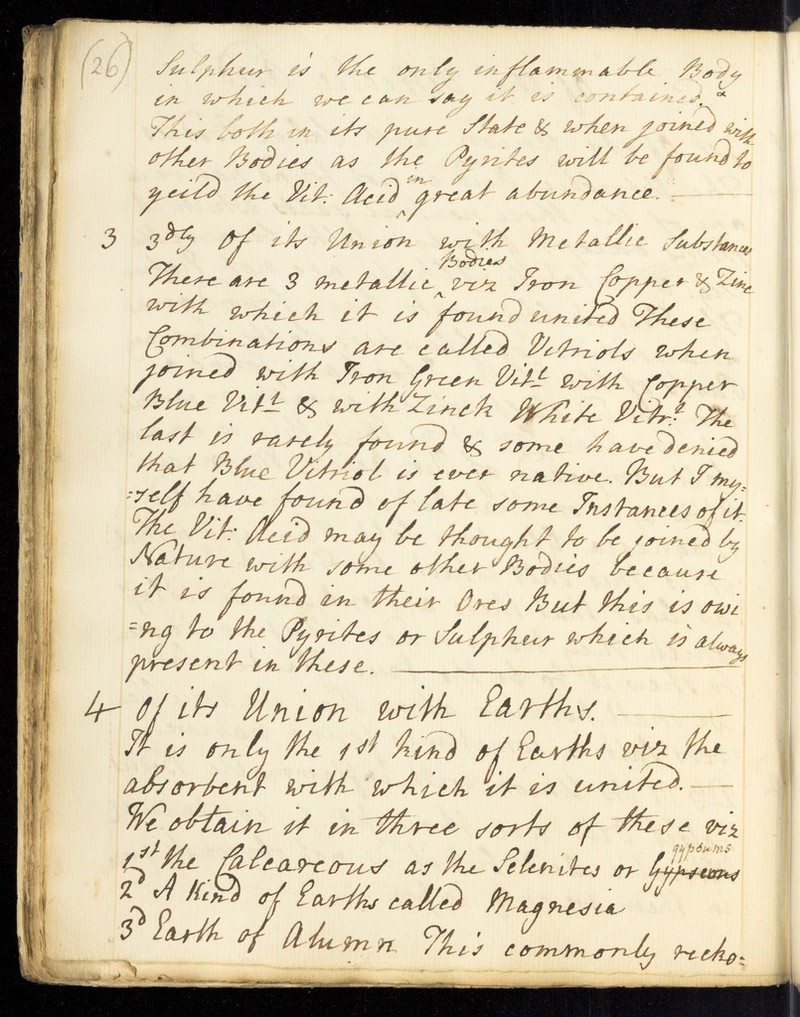 (26)
Sulphur is the only inflammable Body
in which we can say it is contained. &
This both in its pure State & when joined with
other Bodies as the Pyrites will be found to
yeild the Vit: Acid in great abundance.
3 3dly Of its Union with Metallic Substances
There are 3 metallic Bodies viz Iron Copper & Zinc
with which it is found united These
Combinations are called Vitriols when
joined with Iron Green Vitl with Copper
Blue Vitl & with Zinck White Vitrl The
last is rarely found & some have denied
that Blue Vitriol is ever native. But I my=
=self have found of late some Instances of it.
The Vit: Acid may be thought to be joined by
Nature with some other Bodies because
it is found in their Ores But this is owi
=ng to the Pyrites or Sulphur which is always
present in these.
4 Of its Union with Earths.
It is only the 1st kind of Earths viz the
absorbent with which it is united.
We obtain it in three sorts of these viz
1st the Calcareous as the Selenites or Gypseous gypsums
2d A Kind of Earths called Magnesia
3d Earth of Alumn This commonly recko=